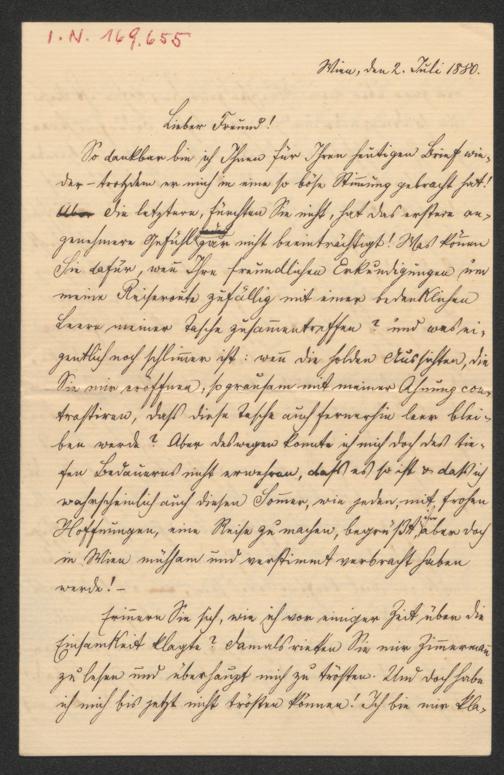 I. N. 169.655
Wien, den 2. Juli 1880.
Lieber Freund!
So dankbar bin ich Ihnen für Ihren heutigen Brief wie-
der – trotzdem er mich in eine so böse Stimmung gebracht hat!
Aber Die letztere, fürchten Sie nicht, hat das erstere an-
genehmere Gefühl gar nicht beeinträchtigt! Was können
Sie dafür, wenn Ihre freundlichen Erkundigungen um
meine Reiseroute zufällig mit einer bedenklichen
Leere meiner Tasche zusammentreffen? und was ei-
gentlich noch schlimmer ist: wenn die holden Aussichten, die
Sie mir eröffnen, so grausam mit meiner Ahnung con-
trastiren, daß diese Tasche auch fernerhin leer blei-
ben werde? Aber deswegen konnte ich mich doch des tie-
fen Bedauerns nicht erwehren, daß es so ist & daß ich
wahrscheinlich auch diesen Sommer, wie jeden, mit frohen
Hoffnungen, eine Reise zu machen, begrüßt, aber doch
in Wien mühsam und verstimmt verbracht haben
werde! –
Erinnern Sie sich, wie ich vor einiger Zeit über die
Einsamkeit klagte? Damals rieten Sie mir Zimmermann
zu lesen und überhaupt mich zu trösten. Und doch habe
ich mich bis jetzt nicht trösten können! Ich bin nur kla-